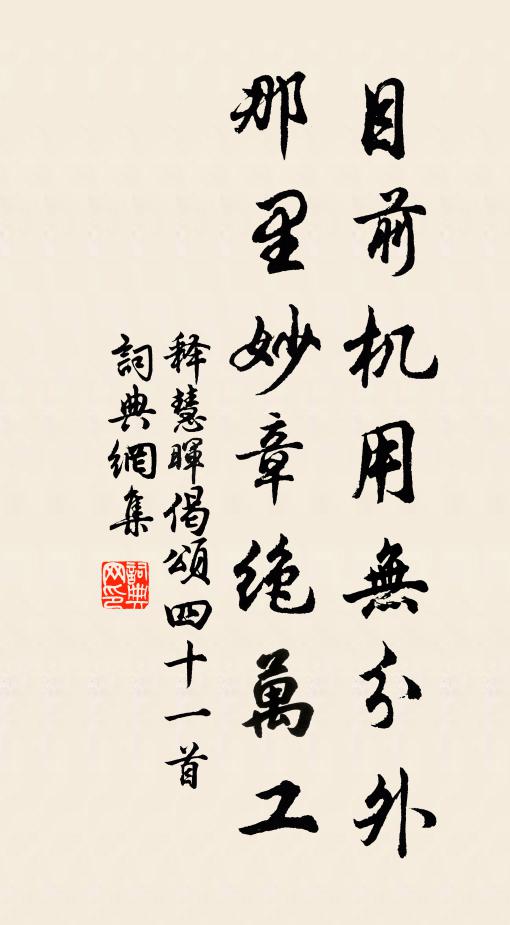 目前机用無分外
那里妙章绝萬工
释慧暉偈頌四十一首
詞典網集
詞典网印